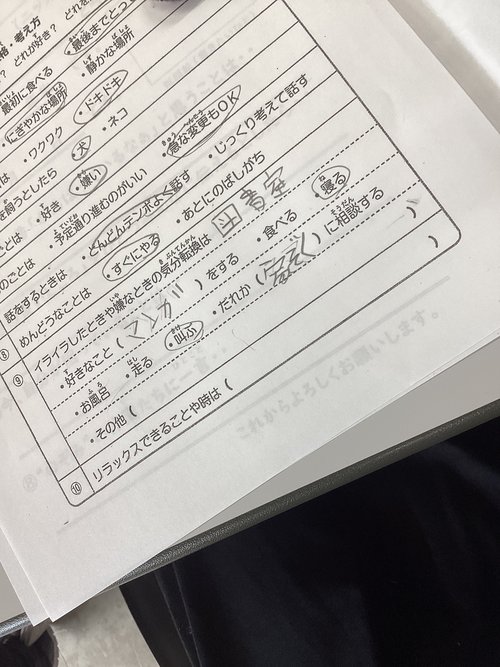 格・考え方
？ どれが好き？ どれを
・最初に食べる ・最後までとっ
・にぎやかな場所 ・静かな場所
は ・ワクワク ・ドキドキ
を飼うとしたら ・犬 ・ネコ
ことは ・好き ・嫌い
のごとは ・予定通り進むのがいい ・急な変更もOK
話をするときは ・どんどんテンポよく話す ・じっくり考えて話す
⑧ めんどうなことは ・すぐにやる ・あとにのばしがち
⑨ イライラしたときや嫌なときの気分転換は 図書室
・好きなこと（マンガ）をする ・食べる ・寝る
・お風呂 ・走る ・叫ぶ ・だれか（ ）に相談する
・その他（ ）
⑩ リラックスできることや時は（ ）
これからよろしくお願いします。